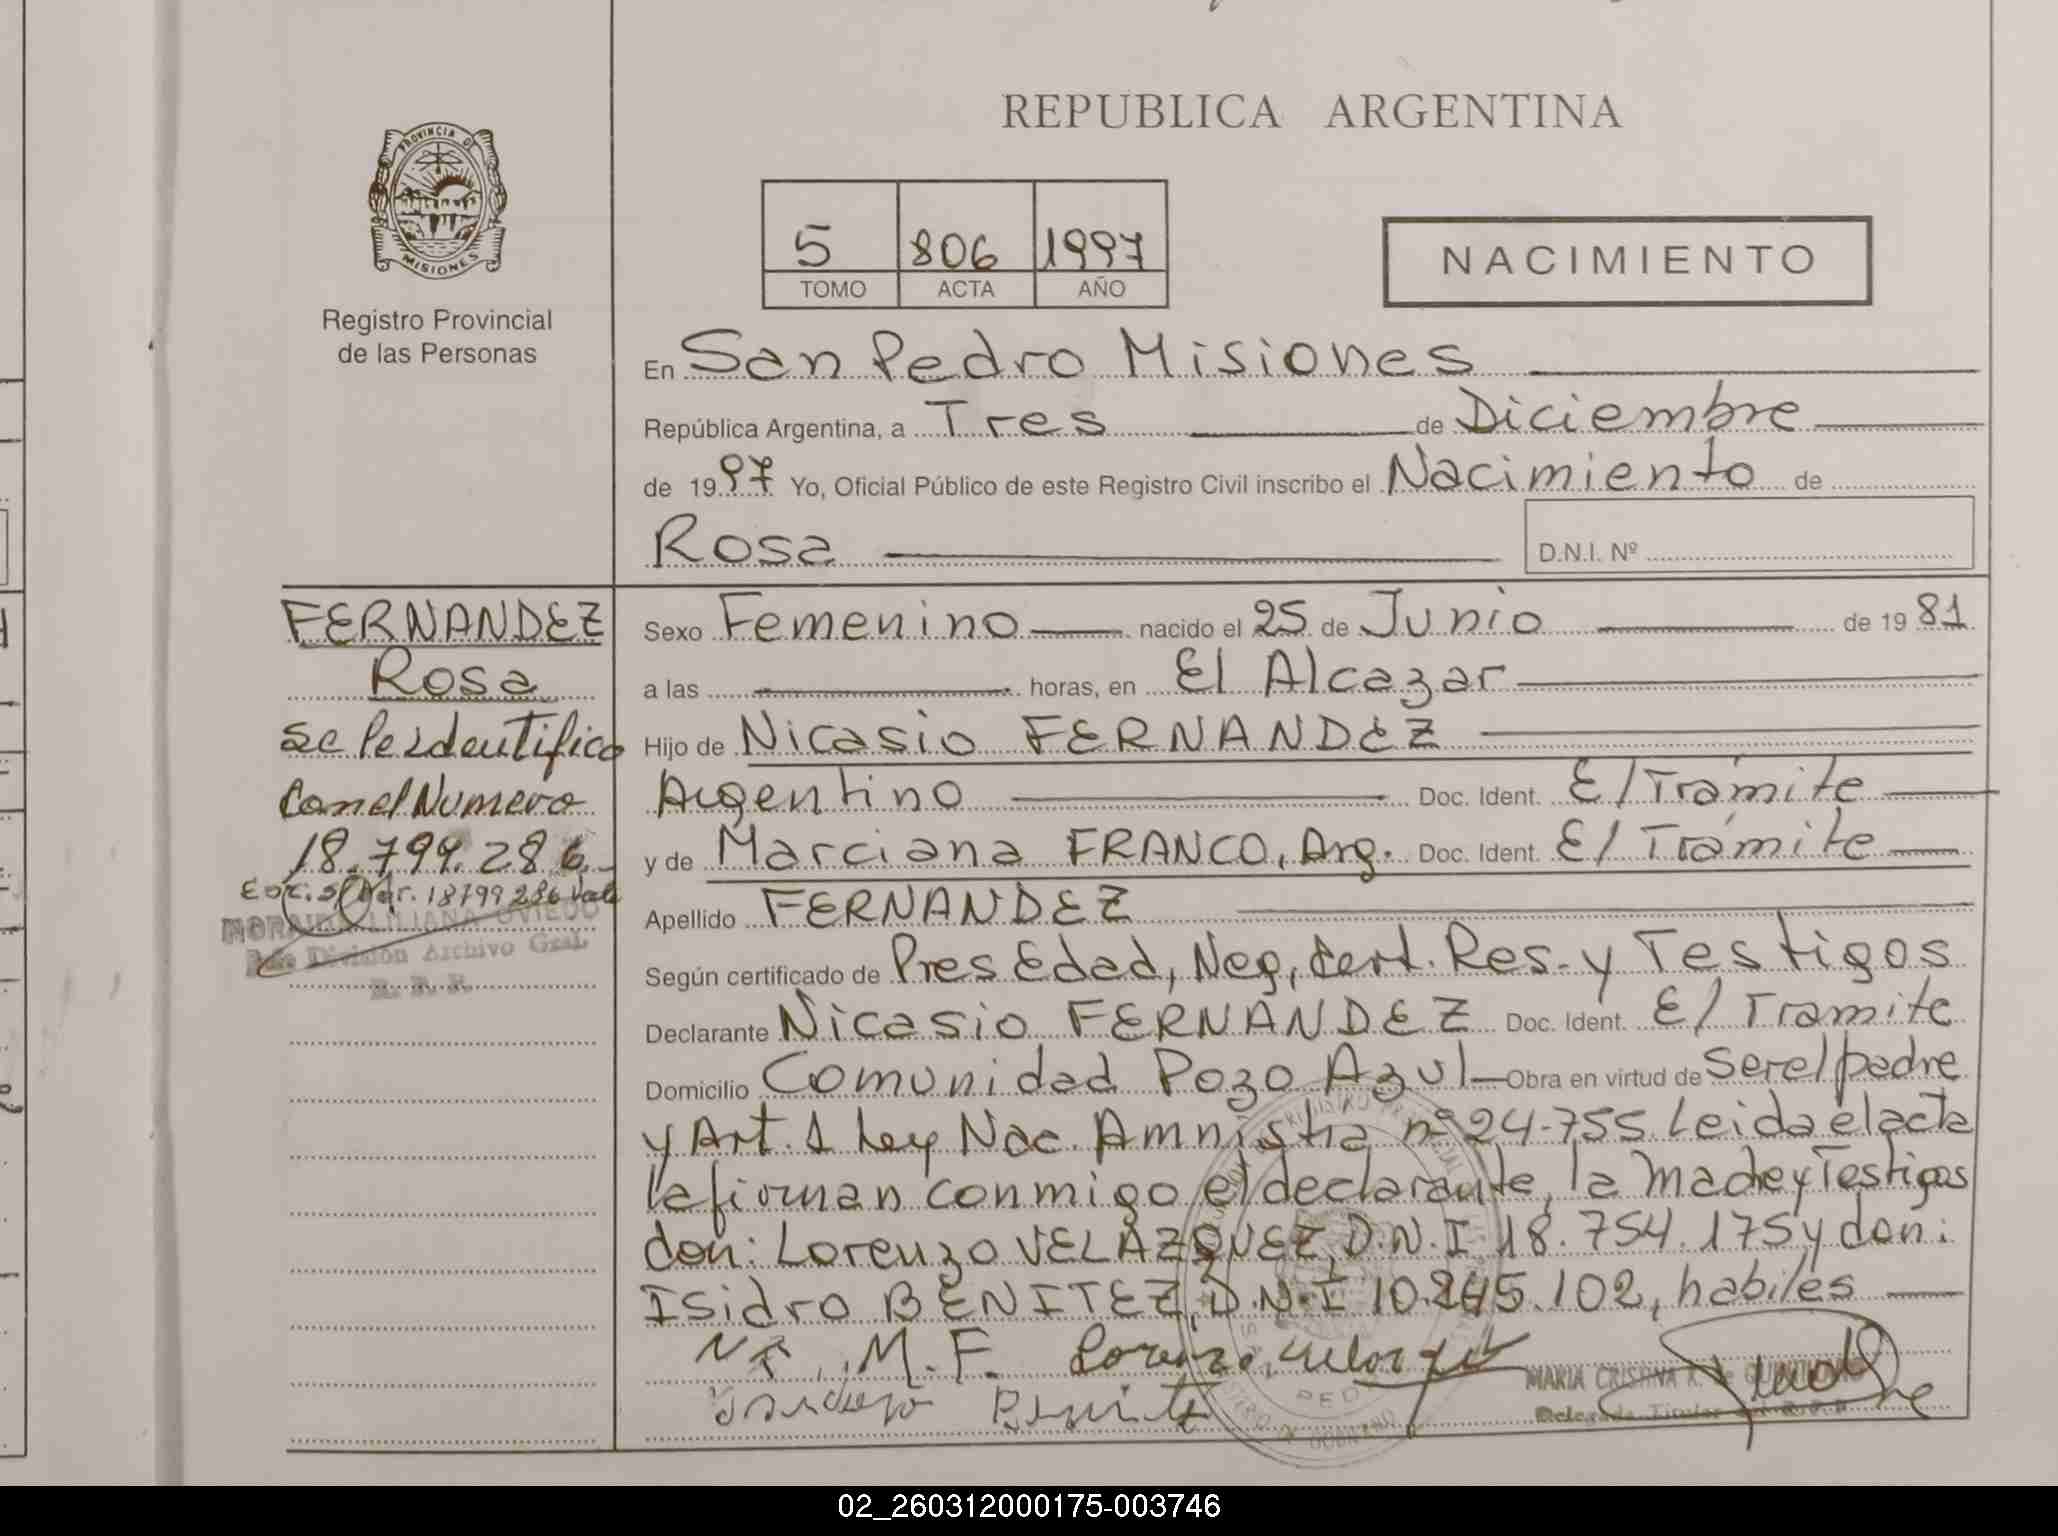 REPUBLICA ARGENTINA
PROVINCIA DE
MISIONES
Registro Provincial
de las Personas
5 806 1997
TOMO ACTA AÑO
NACIMIENTO
En San Pedro Misiones
República Argentina, a Tres de Diciembre
de 1997 Yo, Oficial Público de este Registro Civil inscribo el Nacimiento de
Rosa D.N.I. Nº
FERNANDEZ
Rosa
se le identifico
con el Numero
18.799.286.-
18799286 Vale
MORA LILIANA OVIEDO
División Archivo Gral.
R. P. P.
Sexo Femenino nacido el 25 de Junio de 1981
a las horas, en El Alcazar
Hijo de Nicasio FERNANDEZ
Argentino Doc. Ident. E/Trámite
y de Marciana FRANCO, Arg. Doc. Ident. E/Trámite
Apellido FERNANDEZ
Según certificado de Pres. Edad, Neg, Cert. Res. y Testigos
Declarante Nicasio FERNANDEZ Doc. Ident. E/Tramite
Domicilio Comunidad Pozo Azul Obra en virtud de Ser el padre
y Art. 1 Ley Nac. Amnistia nº 24.755. Leida el acta
la firman conmigo el declarante, la madre y Testigos
don: Lorenzo VELAZQUEZ, D.N.I 18.754.175 y don:
Isidro BENITEZ, D.N.I 10.245.102, habiles
N F. M.F. Lorenzo
Benite
MARIA CRISTINA R. de
Delegada Titular
02_260312000175-003746